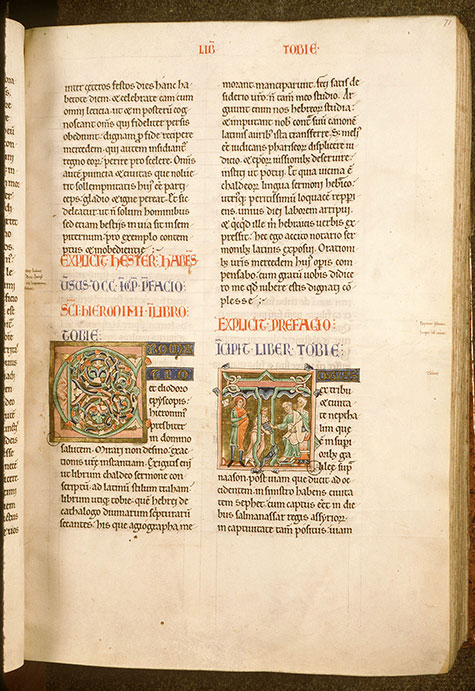 LIB TOBIE·
inter ceteros festos dies hanc ha
betote diem· et celebrate eam cum
omni leticia· ut et in posterum cog
noscant omnes qui fideliter persis
obediunt· dignam pro fide recipere
mercedem· qui autem insidiantur
regno eorum· perire pro scelere· Omnis
autem provincia et civitas que nolue
rit sollempnitatis huius esse parti
ceps· gladio et igne pereat· Et sic
deleatur ut non solum hominibus
sed etiam bestiis invia sit in sem
piternum· pro exemplo contemp
tus et inobedientie·
EXPLICIT HESTER· HABENS
VERSUS·DCC· INCIPIT PFACIO·
SCI·HIERONIMI·IN LIBRO·
TOBIE·
CROMA
TIO
et eliodoro
episcopis·
hieronimus
presbiter
in domino
salutem· Mirari non desino· exac
tionis vestre instantiam· Exigitis enim
ut librum chaldeo sermone con
scriptum· ad latinum stilum traham·
librum utique tobie· quem hebrei de
cathalogo divinarum scripturarum
secantes· his que agiographa me
morant· manciparunt· feci satis de
siderio vestro· non tamen meo studio· Ar
guunt enim nos hebreorum studia·
et imputant nobis contra suum canonem
latinis auribus ista transferre· Sed melius
esse iudicans phariseorum displicere iu
dicio· et episcoporum iussionibus deservire·
institi ut potui· Et quia vicina est
chaldeorum lingua sermoni hebraico·
utriusque peritissimum loquacem repperi
ens· unius diei laborem arripui·
et quicquid ille michi hebraicis verbis ex
pressit· hec ego accito notario ser
monibus latinis exposui· Orationi
bus vestris mercedem huius operis com
pensabo· cum gratum vobis didice
ro me quod iubere estis dignati com
plesse·
EXPLICIT PREFACIO·
INCIPIT LIBER·TOBIE·
T
ex tribu
et civita
te neptha
lim que
est in supi
oribus ga
lilee supra
naason· post viam que ducit ad oc
cidentem· in sinistro habens civita
tem sephet· cum captus esset in die
bus salmanassar regis assyriorum·
in captivitate tamen positus· viam